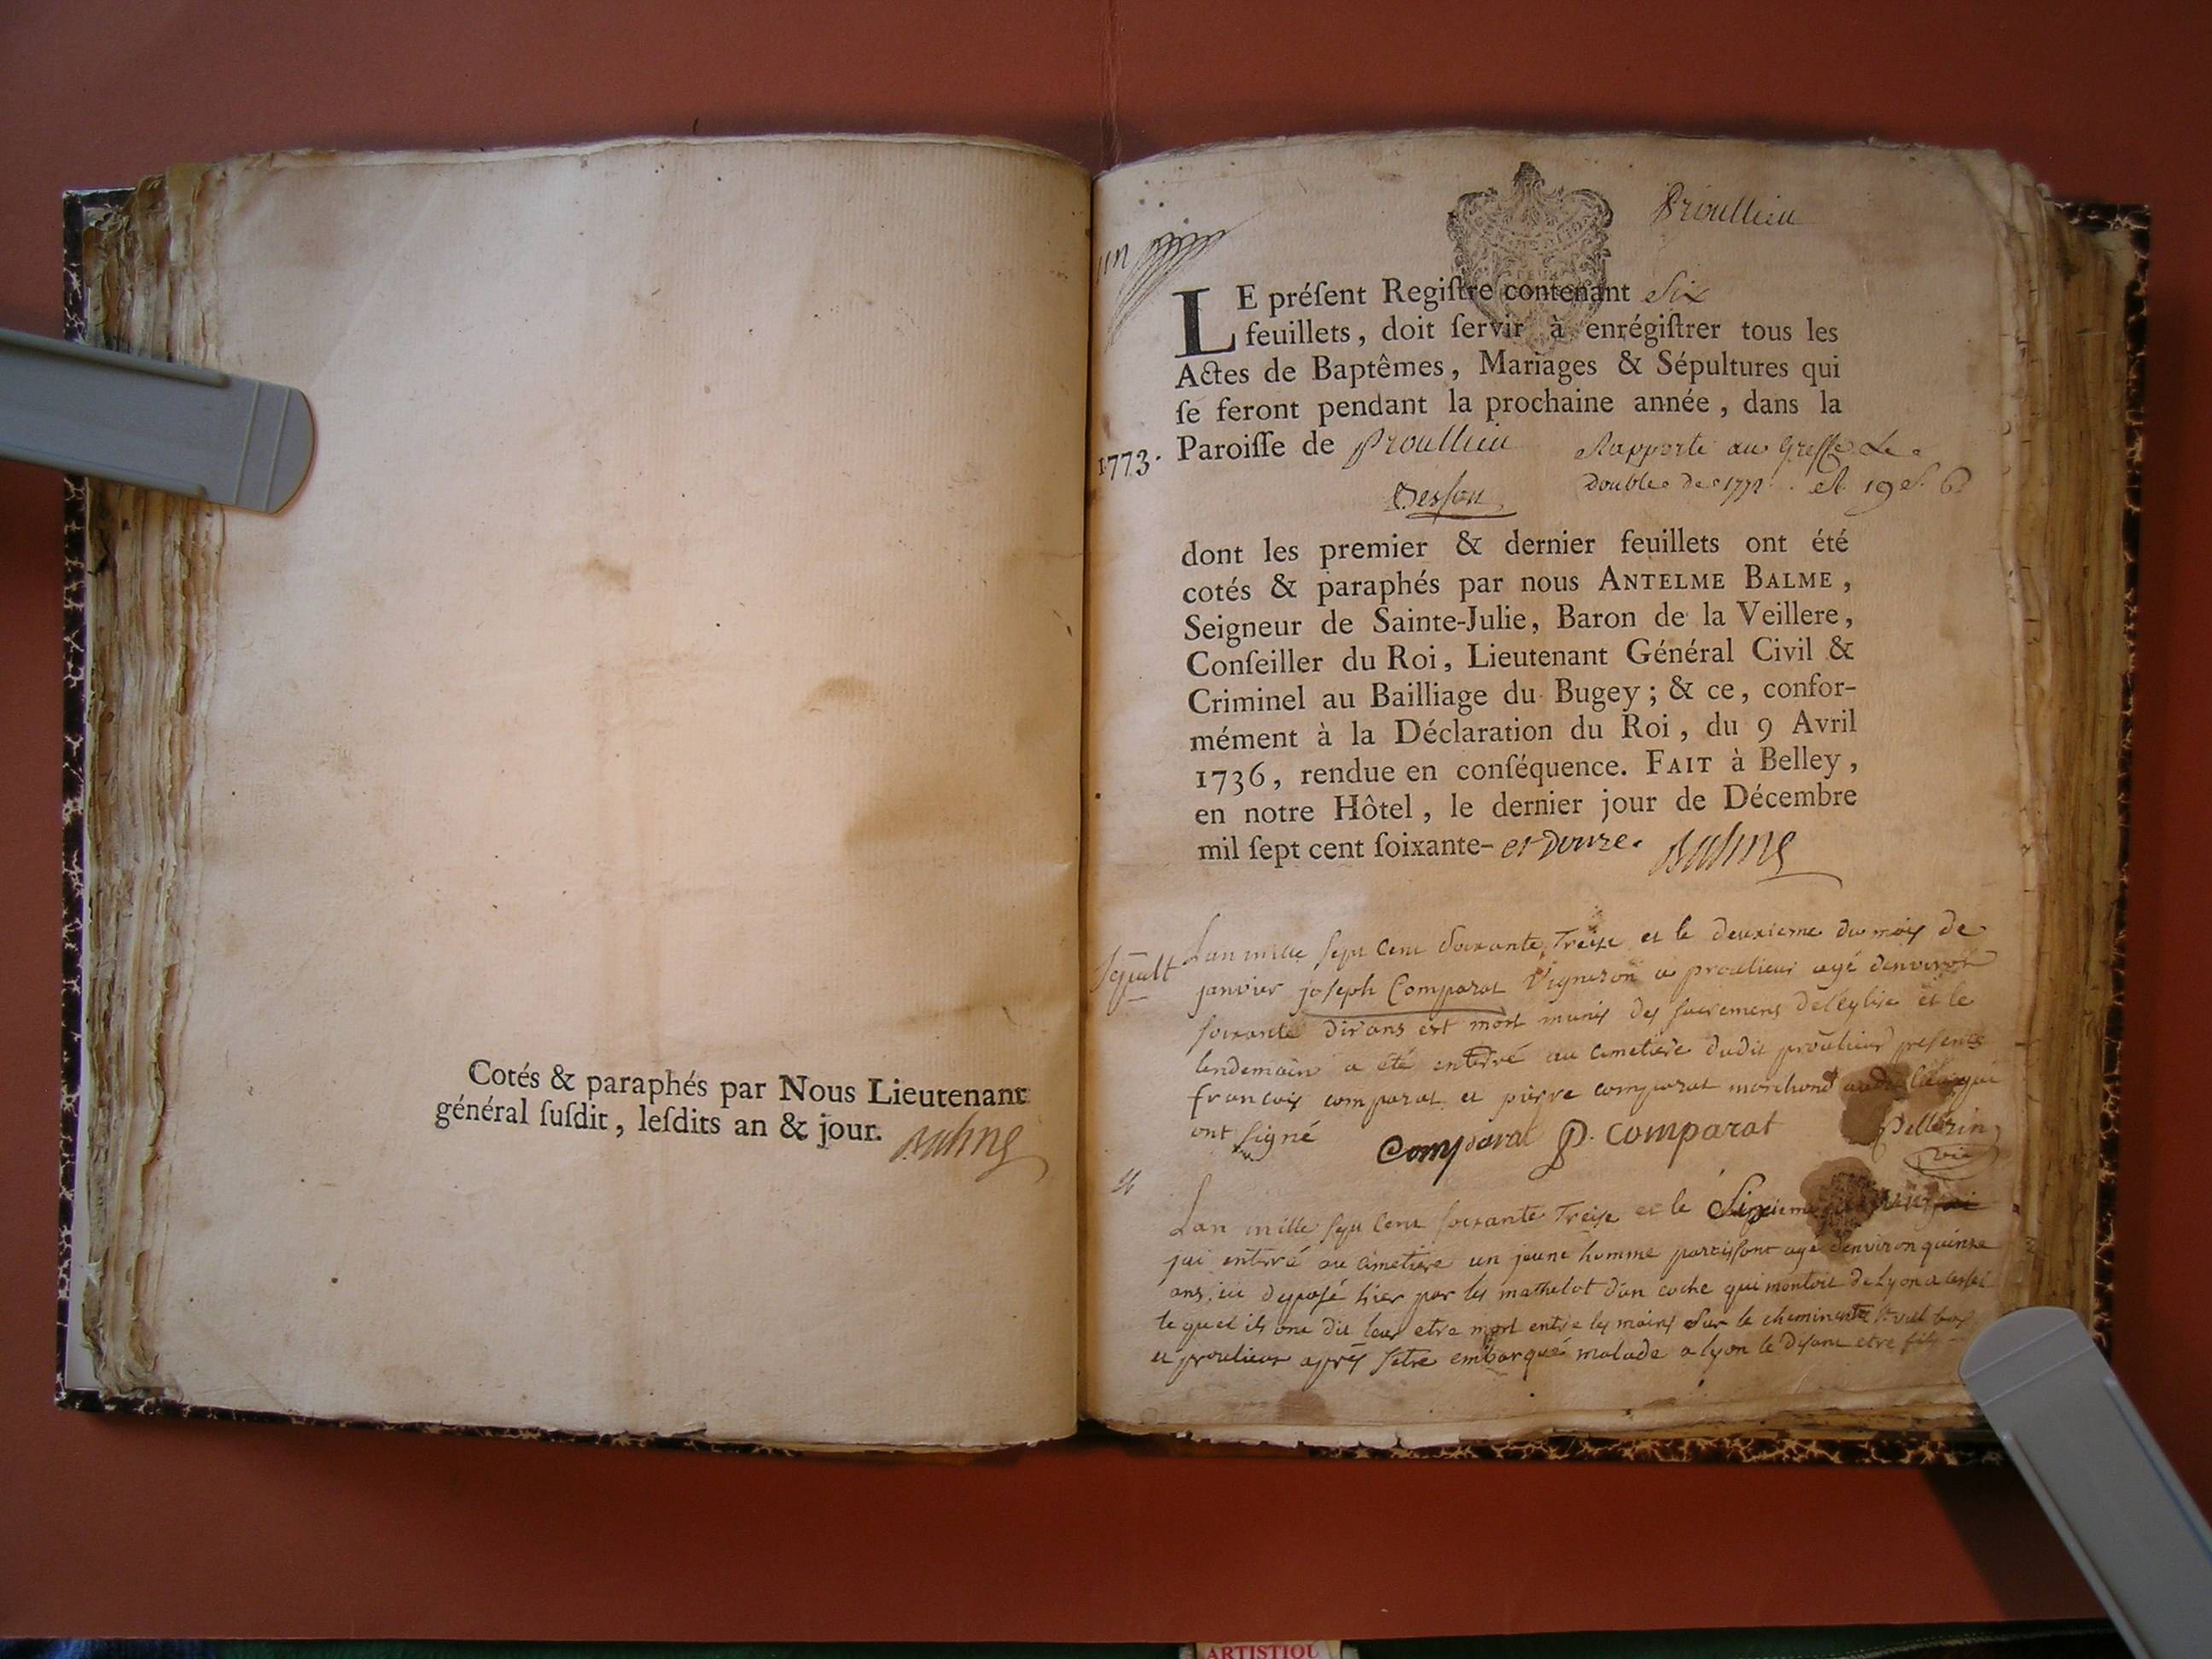 Cotés & paraphés par Nous Lieutenant
général ſuſdit, leſdits an & jour. Balme
un
Proullieu
LE préſent Regiſtre contenant Six
feuillets, doit ſervir à enrégiſtrer tous les
Actes de Baptêmes, Mariages & Sépultures qui
ſe feront pendant la prochaine année, dans la
1773. Paroiſſe de Proullieu
Rapporté au Greffe Le
Double de 1772
dont les premier & dernier feuillets ont été
cotés & paraphés par nous ANTELME BALME,
Seigneur de Sainte-Julie, Baron de la Veillere,
Conſeiller du Roi, Lieutenant Général Civil &
Criminel au Bailliage du Bugey; & ce, confor-
mément à la Déclaration du Roi, du 9 Avril
1736, rendue en conſéquence. FAIT à Belley,
en notre Hôtel, le dernier jour de Décembre
mil ſept cent ſoixante- et Douze. Balme
Lan mille sept cent soixante Treise et le deuxieme du mois de
janvier joseph Comparat Vigneron a proulieu agé denviron
soixante dix ans est mort munis des sacremens de leglise et le
lendemain a été enterré au cimetiere dudit proulieu presents
francois comparat et pierre comparat marchand qui
ont signé Comparat P. Comparat Pellerin
Lan mille sept cent soixante Treise et le Sixieme
jai enterré au cimetiere un jeune homme paroissant agé denviron quinse
ans, ici deposé hier par les mathelot dun coche qui montoit de Lyon a
lequel ils ont dit leur etre mort entre les mains sur le chemin entre
et proulieu aprés setre embarqué malade a lyon se disant etre fils